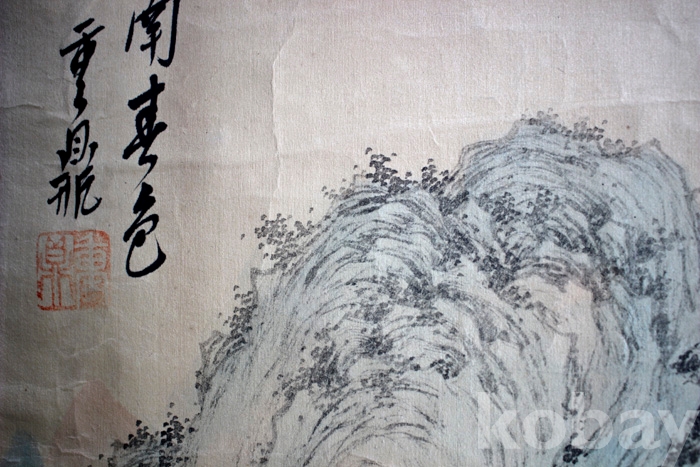 南春色
重鼎
kobay